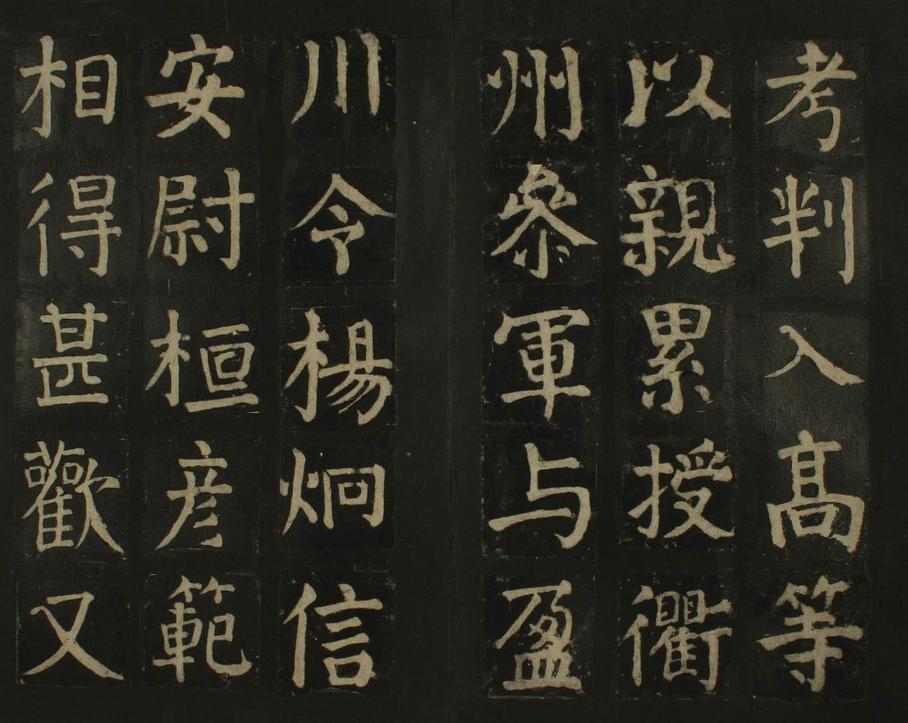 考判入高等
以親累授衢
州叅軍与盈
川令楊炯信
安尉桓彦範
相得甚歡又